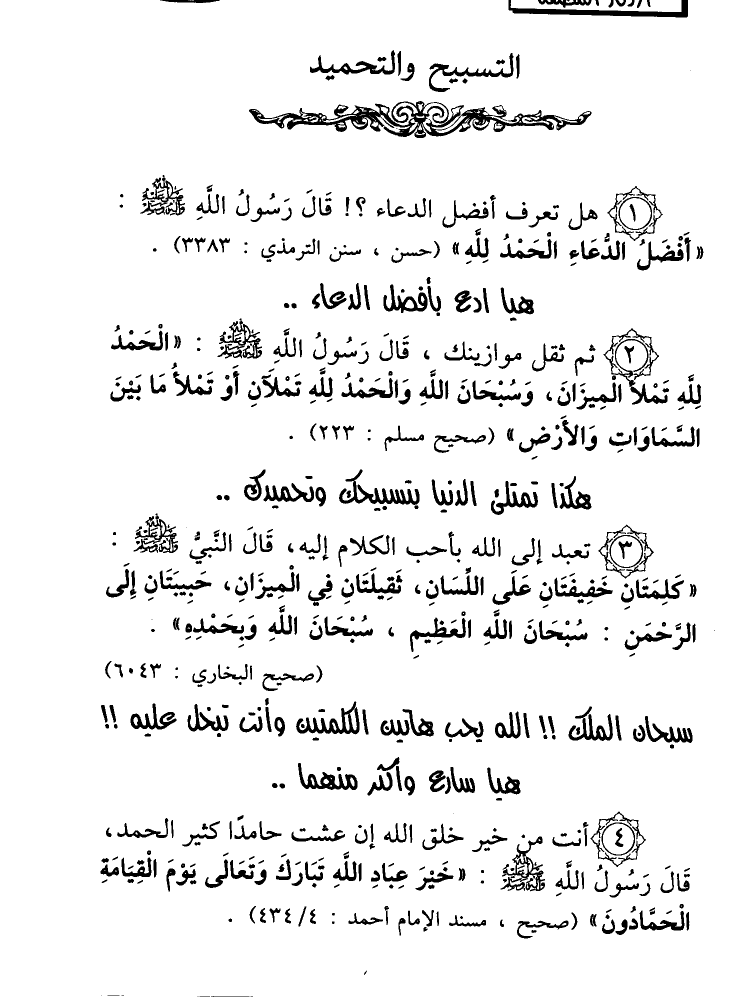 التسبيح والتحميد
١ هل تعرف أفضل الدعاء ؟! قَالَ رَسُولُ اللَّهِ ﷺ :
«أَفْضَلُ الدُّعَاءِ الْحَمْدُ لِلَّهِ» (حسن ، سنن الترمذي : ٣٣٨٣) .
هيا ادع بأفضل الدعاء ..
٢ ثم ثقل موازينك ، قَالَ رَسُولُ اللَّهِ ﷺ : «الْحَمْدُ
لِلَّهِ تَمْلأُ الْمِيزَانَ، وَسُبْحَانَ اللَّهِ وَالْحَمْدُ لِلَّهِ تَمْلَآنِ أَوْ تَمْلأُ مَا بَيْنَ
السَّمَاوَاتِ وَالأَرْضِ» (صحيح مسلم : ٢٢٣) .
هكذا تمتلئ الدنيا بتسبيحك وتحميدك ..
٣ تعبد إلى الله بأحب الكلام إليه، قَالَ النَّبِيُّ ﷺ :
«كَلِمَتَانِ خَفِيفَتَانِ عَلَى اللِّسَانِ، ثَقِيلَتَانِ فِي الْمِيزَانِ، حَبِيبَتَانِ إِلَى
الرَّحْمَنِ : سُبْحَانَ اللَّهِ الْعَظِيمِ ، سُبْحَانَ اللَّهِ وَبِحَمْدِهِ» .
(صحيح البخاري : ٦٠٤٣)
سبحان الملك !! الله يحب هاتين الكلمتين وأنت تبخل عليه !!
هيا سارع وأكثر منهما ..
٤ أنت من خير خلق الله إن عشت حامدًا كثير الحمد،
قَالَ رَسُولُ اللَّهِ ﷺ : «خَيْرَ عِبَادِ اللَّهِ تَبَارَكَ وَتَعَالَى يَوْمَ الْقِيَامَةِ
الْحَمَّادُونَ» (صحيح ، مسند الإمام أحمد : ٤٣٤/٤) .